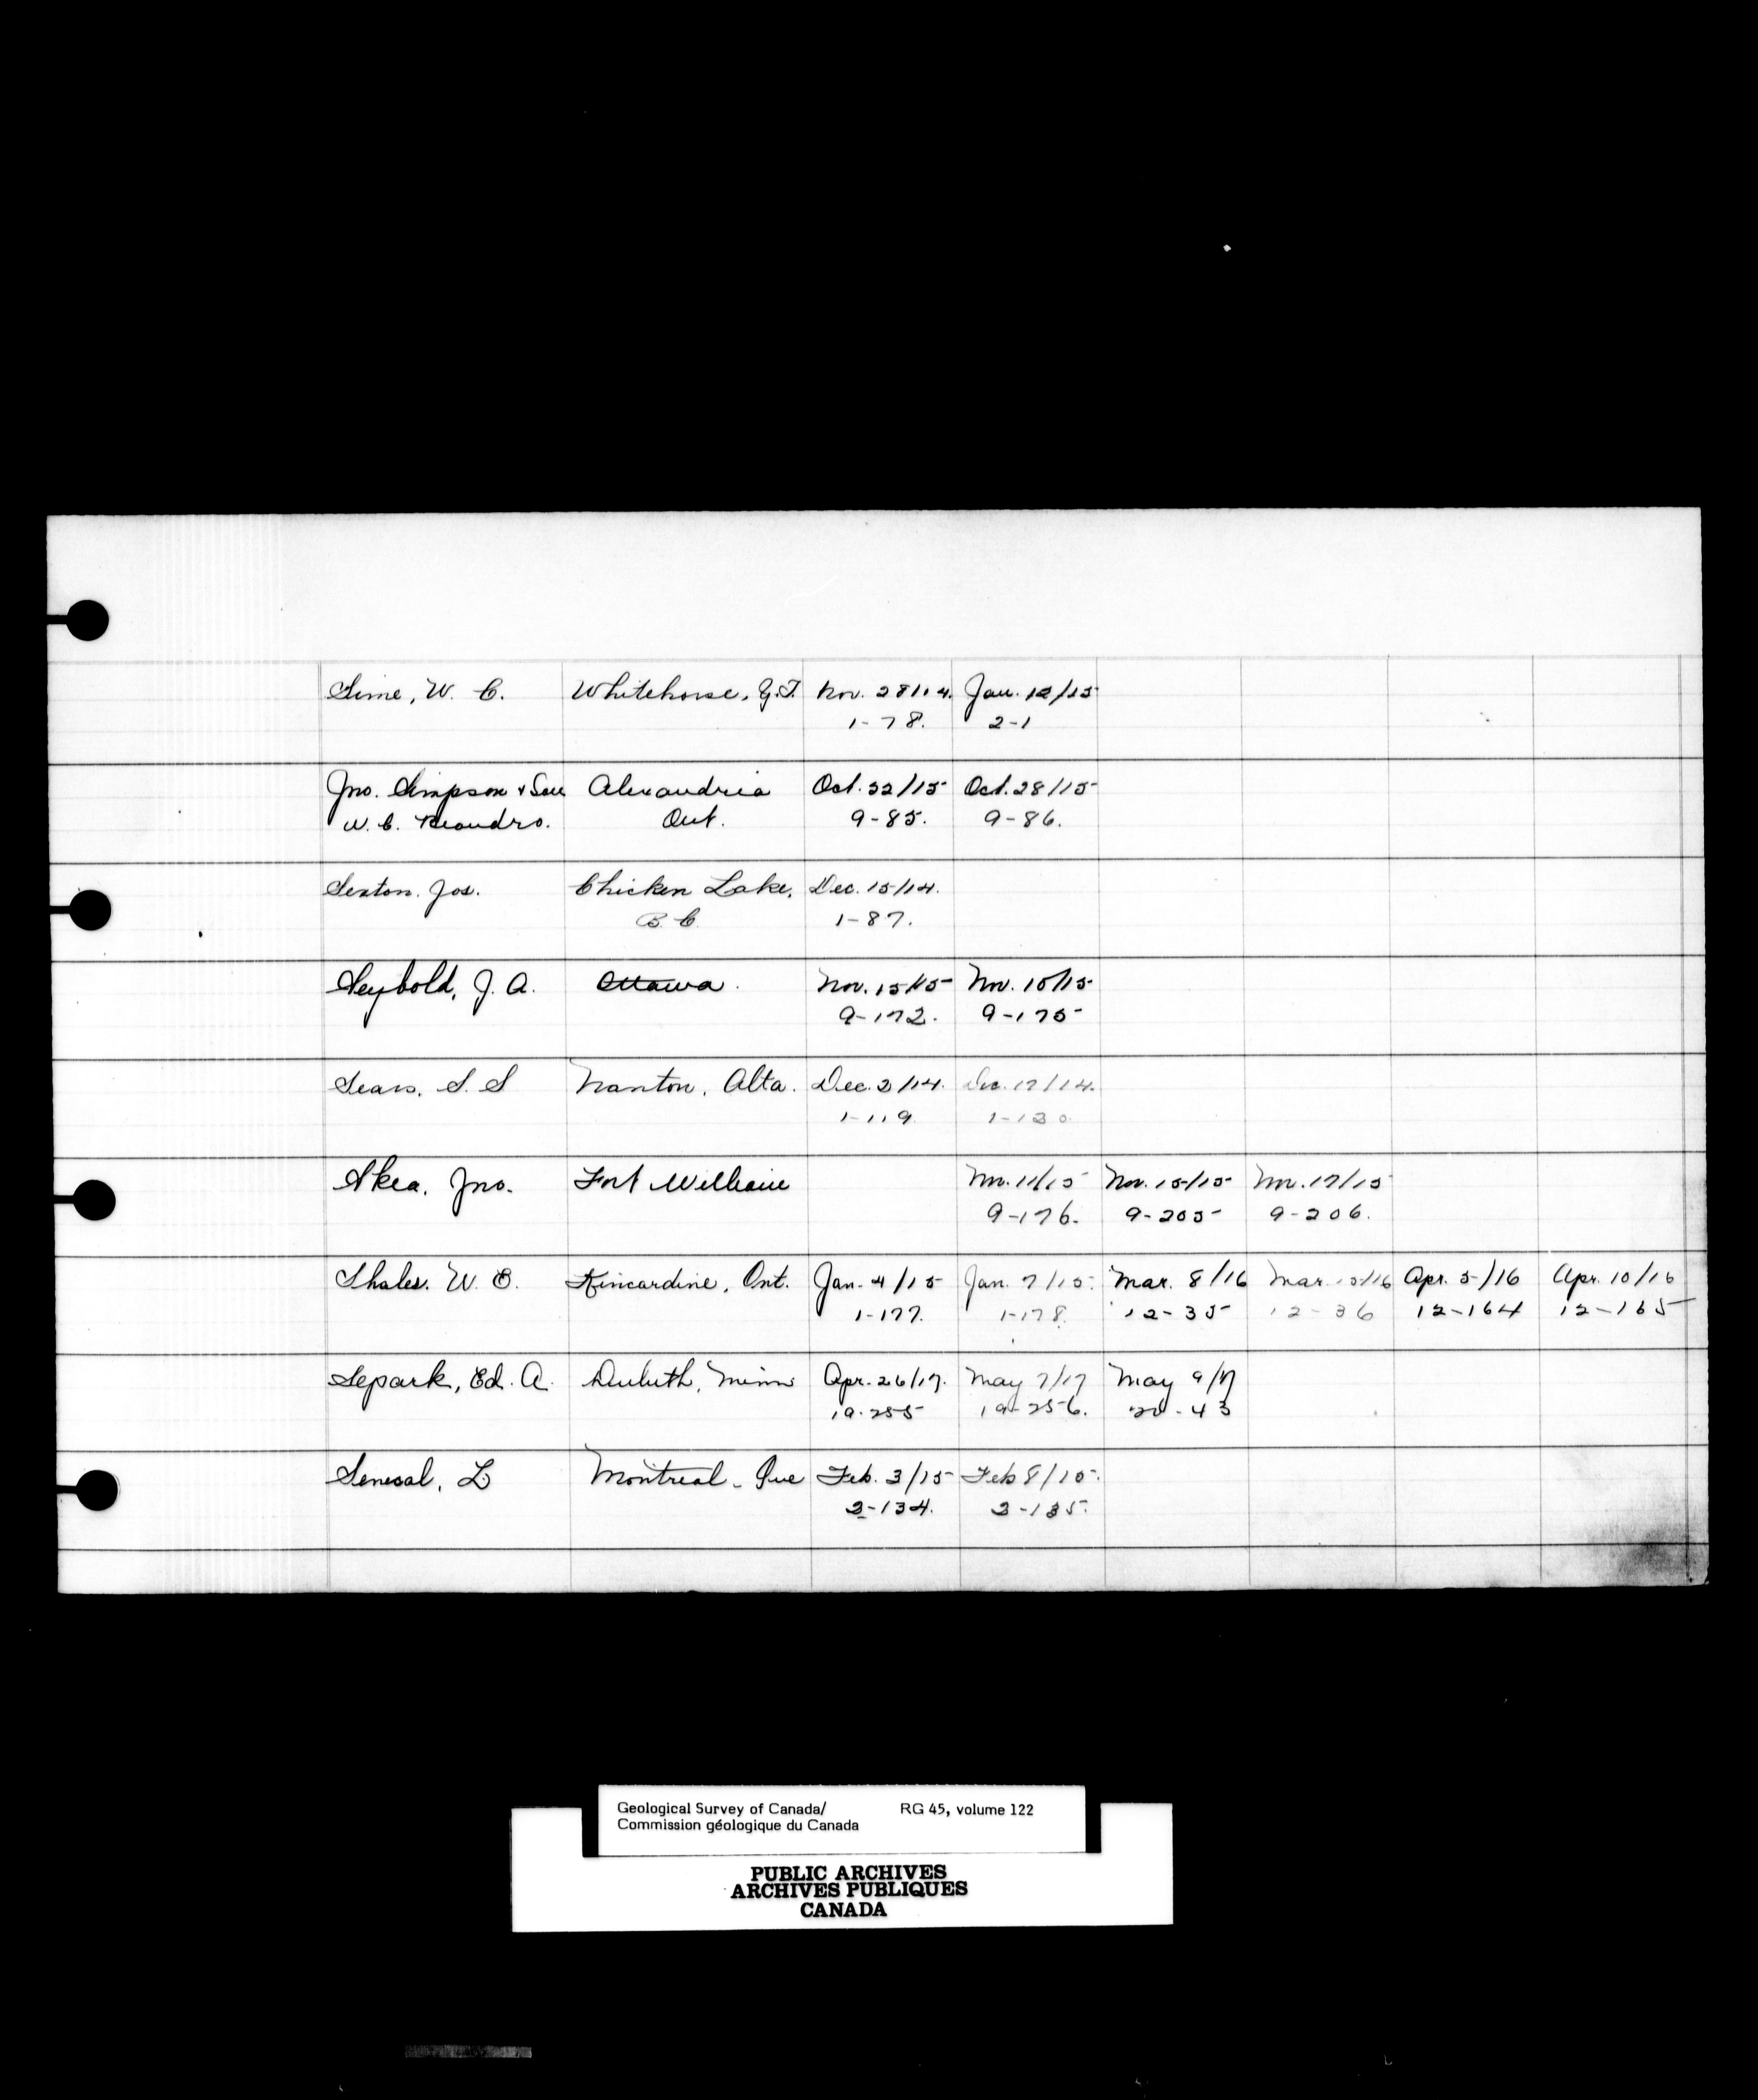 Sime, W. C. Whitehorse, Y.T. Nov. 28/14. Jan. 12/15
1-78. 2-1
Jno. Simpson & Son Alexandria Oct. 22/15 Oct. 28/15
W. C. Ont. 9-85. 9-86.
Sexton. Jos. Chicken Lake, Dec. 15/14.
B. C 1-87.
Seybold, J. A. Ottawa. Nov. 15/15 Nov. 15/15
9-172. 9-175
Sears, S. S Nanton, Alta. Dec. 2/14. Dec. 17/14.
1-119 1-130
Skea, Jno. Fort William Nov. 11/15 Nov. 15/15 Nov. 17/15
9-176. 9-205 9-206.
Shales. W. E. Kincardine, Ont. Jan. 4/15 Jan. 7/15. Mar. 8/16 Mar. 15/16 Apr. 5/16 Apr. 10/16
1-177. 1-178. 12-35 12-36 12-164 12-165
Separk, Ed. A. Duluth, Minn Apr. 26/17. May 7/17 May 9/17
19-255 19-256. 20-43
Senecal, L Montreal - Que Feb. 3/15 Feb 8/15.
2-134. 2-135.
Geological Survey of Canada/ RG 45, volume 122
Commission géologique du Canada
PUBLIC ARCHIVES
ARCHIVES PUBLIQUES
CANADA